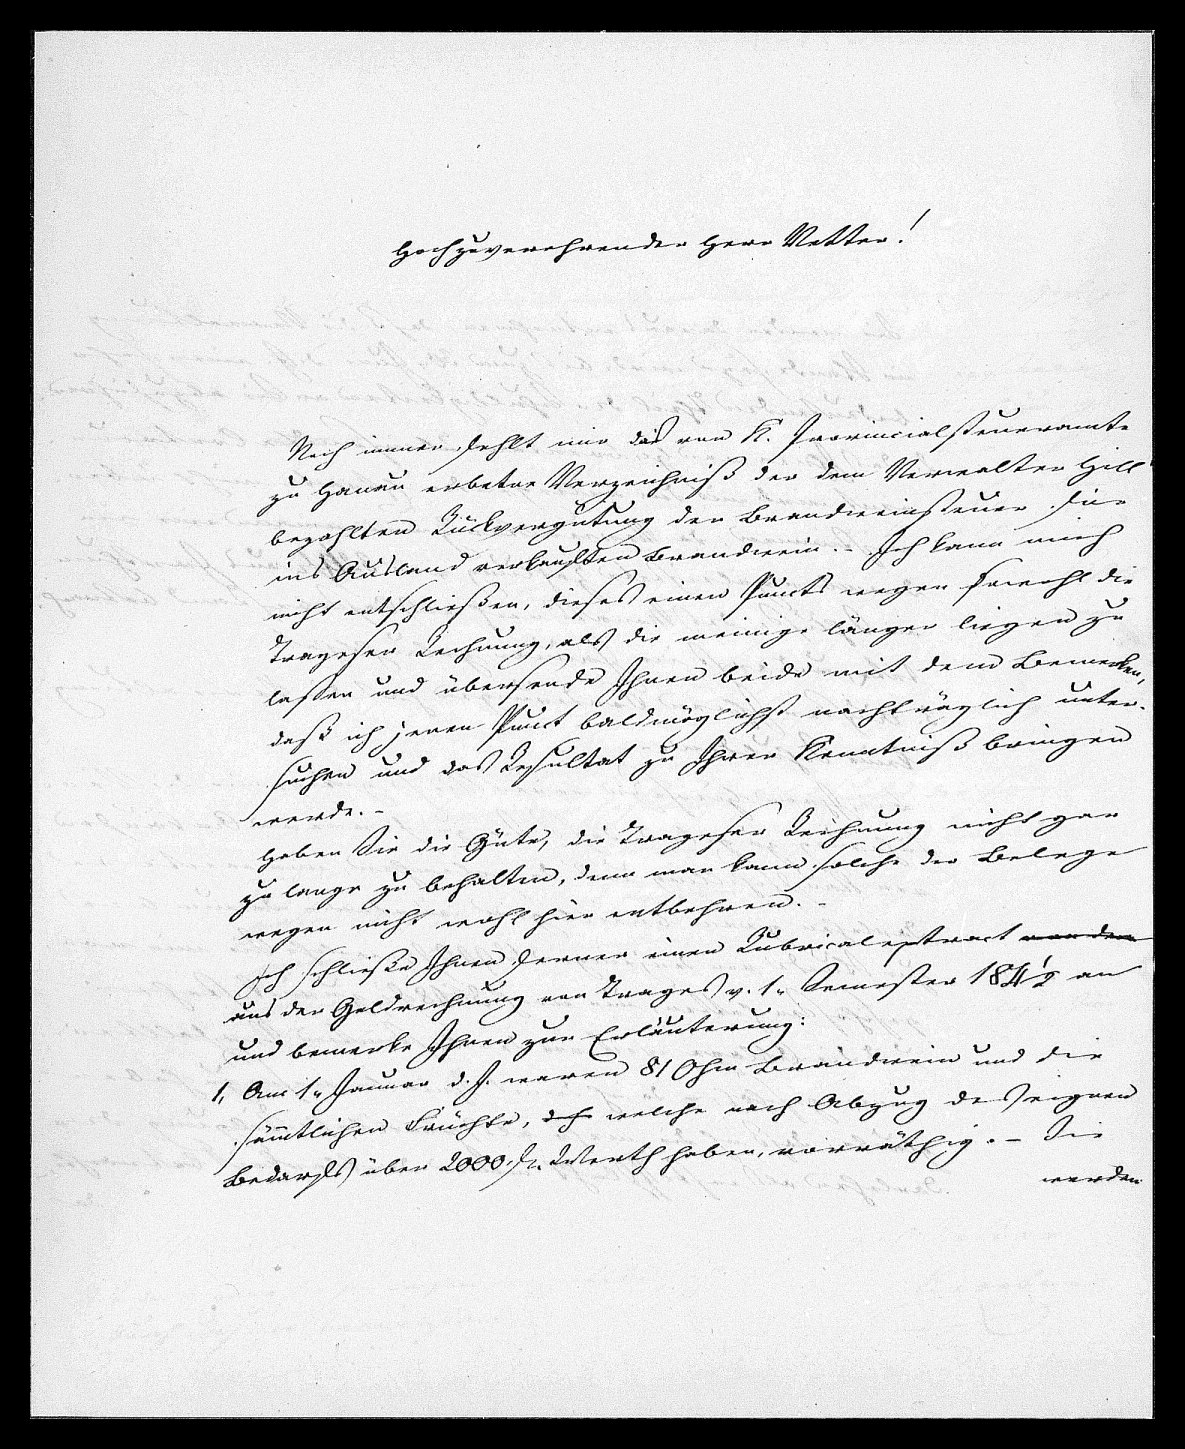 Hochzuverehrender Herr Vetter!
Noch immer fehlt mir das vom K. Provincialsteueramte
zu Hanau erbetne Verzeichniß der dem Verwalter Hill
bezahlten Rückvergütung der Brandweinsteuer für
ins Ausland verkauften Brandwein. – Ich kann mich
nicht entschließen, dieses einen Puncts wegen sowohl die
Trageser Rechnung, als die meinige länger liegen zu
lassen und übersende Ihnen beide mit dem Bemerken,
daß ich jenen Punct baldmöglichst nachträglich unter-
suchen und das Resultat zu Ihrer Kenntniß bringen
werde. –
Haben Sie die Güte, die Trageser Rechnung nicht gar
zu lange zu behalten, denn man kann solche der Belege
wegen nicht wohl hier entbehren. –
Ich schließe Ihnen ferner einen Rubricalextract
aus der Geldrechnung von Trages v. 1n Semester 1841/2 an
und bemerke Ihnen zur Erläuterung:
1, Am 1n Januar d. J. waren 81 Ohm Brandwein und die
sämtlichen Früchte, welche nach Abzug des eignen
Bedarfs über 2000 f. Werth haben, vorräthig. – Sie
werden